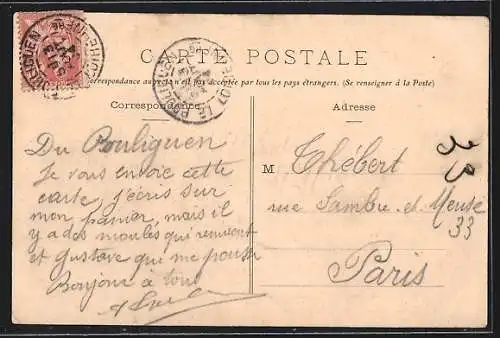 CARTE POSTALE
La Correspondance au recto n'est pas acceptée par tous les pays étrangers. (Se renseigner à la Poste)
Correspondance
Adresse
Du Pouliguen
Je vous envoie cette
carte, j'écris sur
mon panier, mais il
y a des moules qui remuent
et Gustave qui me pousse
Bonjour à tous
M Thébert
rue Sambre et Meuse
33
Paris